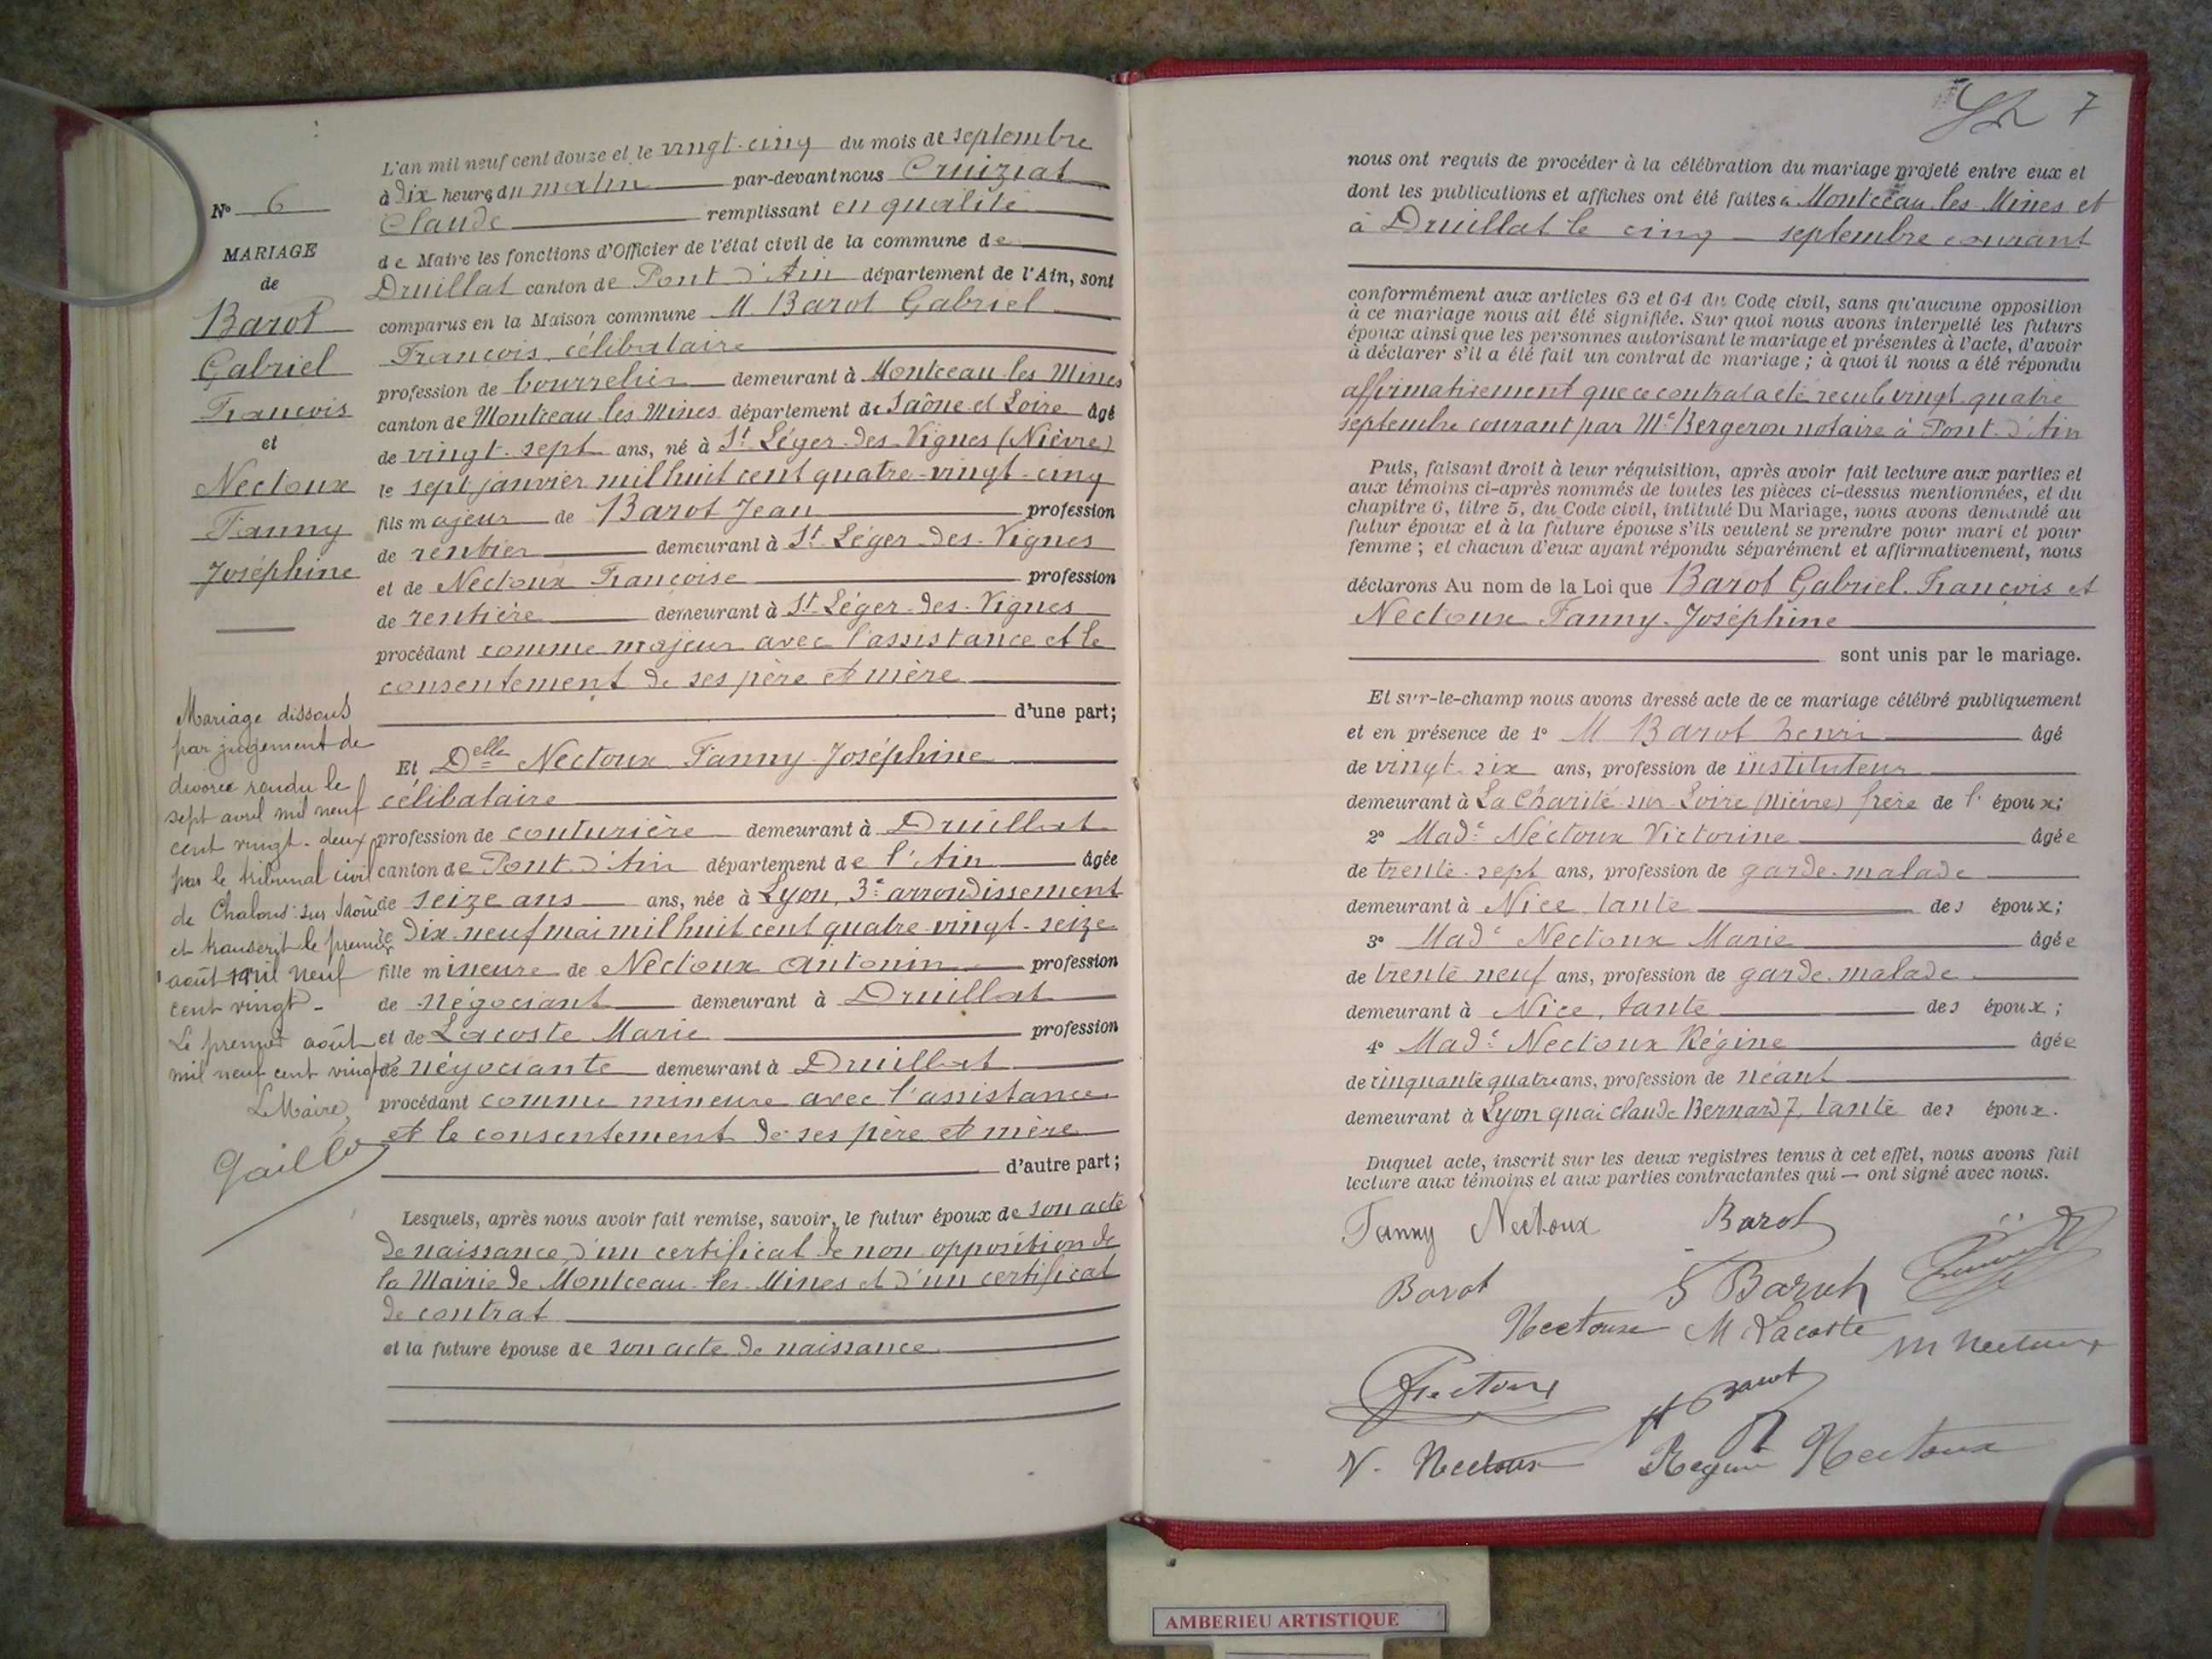 L'an mil neuf cent douze et le vingt-cinq du mois de septembre
à dix heures du matin par-devant nous Cruiziat
Claude remplissant en qualité
de Maire les fonctions d'Officier de l'état civil de la commune de
Druillat canton de Pont d'Ain département de l'Ain, sont
comparus en la Maison commune M. Barot Gabriel
François, célibataire
profession de bourrelier demeurant à Montceau-les-Mines
canton de Montceau-les-Mines département de Saône et Loire âgé
de vingt-sept ans, né à St Léger-des-Vignes (Nièvre)
le sept janvier mil huit cent quatre-vingt-cinq
fils majeur de Barot Jean profession
de rentier demeurant à St Léger-des-Vignes
et de Nectoux Françoise profession
de rentière demeurant à St Léger-des-Vignes
procédant comme majeur avec l'assistance et le
consentement de ses père et mère
d'une part;
Et Delle Nectoux Fanny-Joséphine
célibataire
profession de couturière demeurant à Druillat
canton de Pont-d'Ain département de l'Ain âgée
de seize ans ans, née à Lyon, 3e arrondissement
le dix-neuf mai mil huit cent quatre-vingt-seize
fille mineure de Nectoux Antonin profession
de négociant demeurant à Druillat
et de Lacoste Marie profession
de négociante demeurant à Druillat
procédant comme mineure avec l'assistance
et le consentement de ses père et mère
d'autre part;
Lesquels, après nous avoir fait remise, savoir, le futur époux de son acte
de naissance, d'un certificat de non opposition de
la Mairie de Montceau-les-Mines et d'un certificat
de contrat
et la future épouse de son acte de naissance
N° 6
MARIAGE
de
Barot
Gabriel
François
et
Nectoux
Fanny
Joséphine
Mariage dissous
par jugement de
divorce rendu le
sept avril mil neuf
cent vingt-deux
par le tribunal civil
de Chalons-sur-Saône
et transcrit le premier
août mil neuf
cent vingt-
Le premier août
mil neuf cent vingt
Le Maire,
7
nous ont requis de procéder à la célébration du mariage projeté entre eux et
dont les publications et affiches ont été faites à Montceau-les-Mines et
à Druillat le cinq septembre courant
conformément aux articles 63 et 64 du Code civil, sans qu'aucune opposition
à ce mariage nous ait été signifiée. Sur quoi nous avons interpellé les futurs
époux ainsi que les personnes autorisant le mariage et présentes à l'acte, d'avoir
à déclarer s'il a été fait un contrat de mariage; à quoi il nous a été répondu
affirmativement que ce contrat a été reçu le vingt-quatre
septembre courant par Me Bergeron notaire à Pont-d'Ain
Puis, faisant droit à leur réquisition, après avoir fait lecture aux parties et
aux témoins ci-après nommés de toutes les pièces ci-dessus mentionnées, et du
chapitre 6, titre 5, du Code civil, intitulé Du Mariage, nous avons demandé au
futur époux et à la future épouse s'ils veulent se prendre pour mari et pour
femme; et chacun d'eux ayant répondu séparément et affirmativement, nous
déclarons Au nom de la Loi que Barot Gabriel-François et
Nectoux Fanny-Joséphine
sont unis par le mariage.
Et sur-le-champ nous avons dressé acte de ce mariage célébré publiquement
et en présence de 1° M Barot henri âgé
de vingt-six ans, profession de instituteur
demeurant à La Charité-sur-Loire (Nièvre) frère de l' époux;
2° Made Nectoux Victorine âgée
de trente-sept ans, profession de garde-malade
demeurant à Nice, tante des époux;
3° Made Nectoux Marie âgée
de trente neuf ans, profession de garde-malade
demeurant à Nice, tante des époux;
4° Made Nectoux Régine âgée
de cinquante quatre ans, profession de néant
demeurant à Lyon quai Claude Bernard 7, tante des époux.
Duquel acte, inscrit sur les deux registres tenus à cet effet, nous avons fait
lecture aux témoins et aux parties contractantes qui — ont signé avec nous.
Fanny Nectoux Barot
Barot
Nectoux M Lacoste M Nectoux
Nectoux H Barot
V. Nectoux Régine Nectoux
AMBERIEU ARTISTIQUE